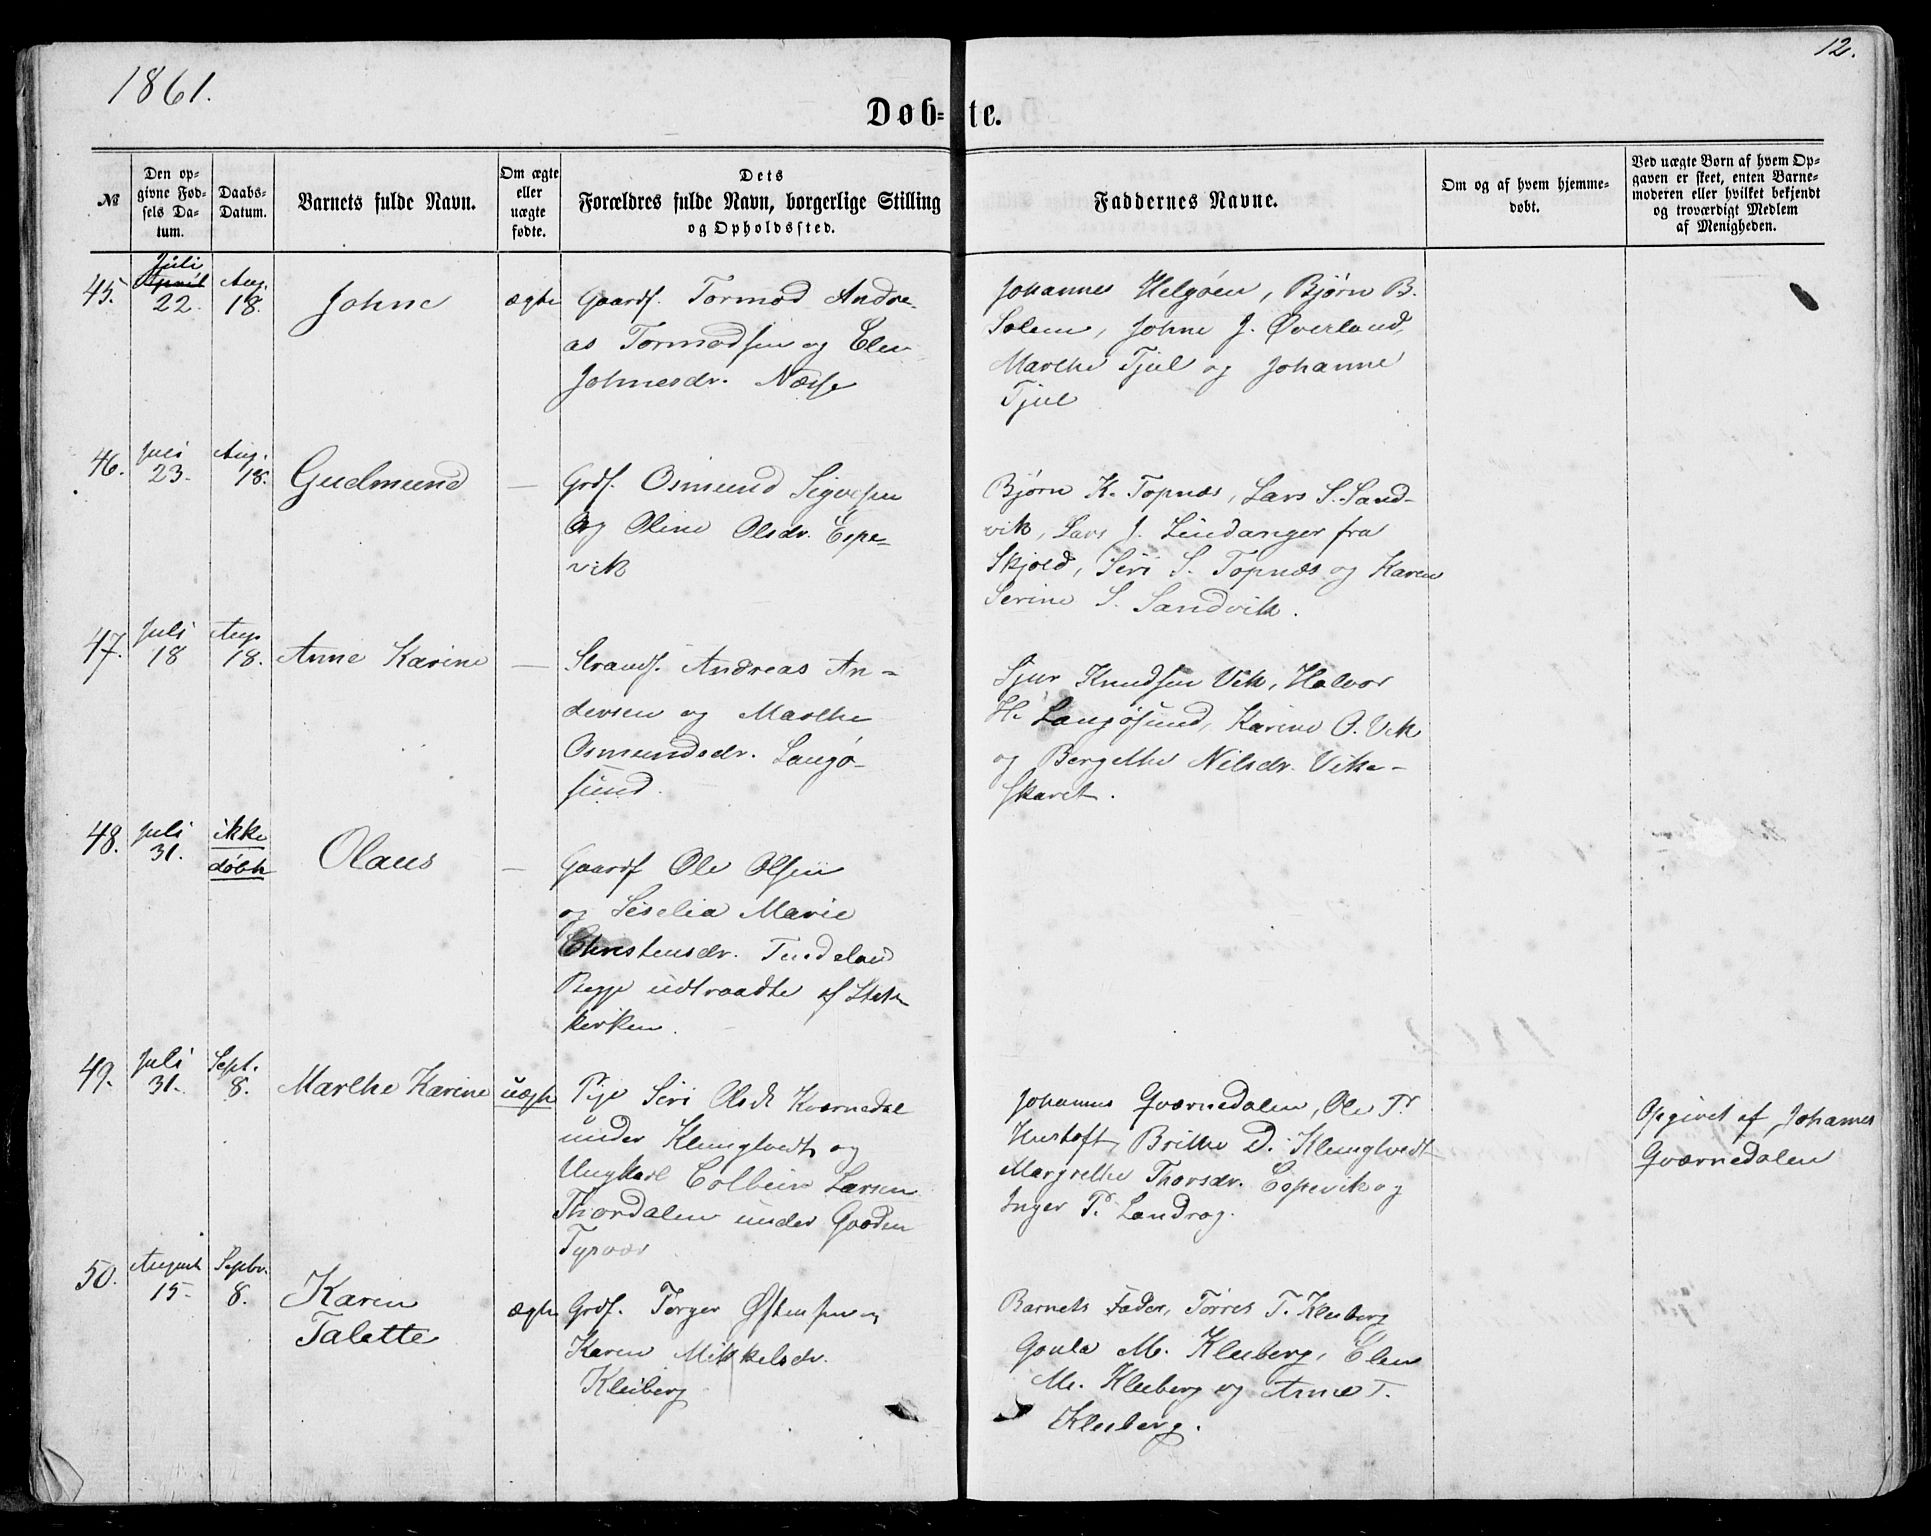 12.
1861.
Døb=te.
№
Den op=
givne Fød=
sels Da=
tum.
Daabs=
Datum.
Barnets fulde Navn.
Om ægte
eller
uægte
fødte.
Dets
Forældres fulde Navn, borgerlige Stilling
og Opholdssted.
Faddernes Navne.
Om og af hvem hjemme=
døbt.
Ved uægte Børn af hvem Op=
gaven er skeet, enten Barne=
moderen eller hvilket bekjendt
og troværdigt Medlem
af Menigheden.
45.
Juli
April
22.
Aug.
18.
Johne
ægte
Gaardf. Tormod Andre-
as Tormodsen og Elen
Johnesdr. Næsse
Johannes Helgøen, Bjørn B.
Solem, Johne J. Øverland,
Marthe Tjul og Johanne
Tjul
46.
Juli
23.
Aug.
18.
Gudmund
—
Grdf. Osmund Sigvesen
og Oline Olsdr. Espe-
vik
Bjørn K. Topnæs, Lars S. Sand-
vik, Lars J. Lindanger fra
Skjold, Siri S. Topnæs og Karen
Serine S. Sandvik.
47.
Juli
18
Aug.
18.
Anne Karine
—
Strandf. Andreas An-
dersen og Marthe
Osmundsdr. Langø-
sund.
Sjur Knudsen Vik, Halvor
H. Langøsund, Karine O. Vik
og Bergethe Nilsdr. Vike-
skaret.
48.
Juli
31.
ikke
døbt
Olaus
—
Gaardf Ole Olsen
og Siselia Marie
Christensdr. Tindeland
Begge udtraadte af Stats
kirken.
49.
Juli
31.
Sept.
8.
Marthe Karine
uægte
Pige Siri Olsdt Kvarnedal
under Klungtvedt og
Ungkarl Colbein Larsen
Thordalen under Gvoden
Tysvær
Johannes Qvarnedalen, Ole P.
Hustoft, Brithe D. Klungtvedt
Margrethe Thorsdr. Espevik og
Inger P. Landrog.
Opgivet af Johannes
Qværnedalen
50.
August
15.
Septbr.
8.
Karen
Talette
ægte
Grdf. Torger Østensen og
Karen Mikkelsdr.
Kleiberg
Barnets Fader, Tørres T. Kleiberg
Gonla M. Kleiberg, Elen
M. Kleiberg og Anne T.
Kleiberg.